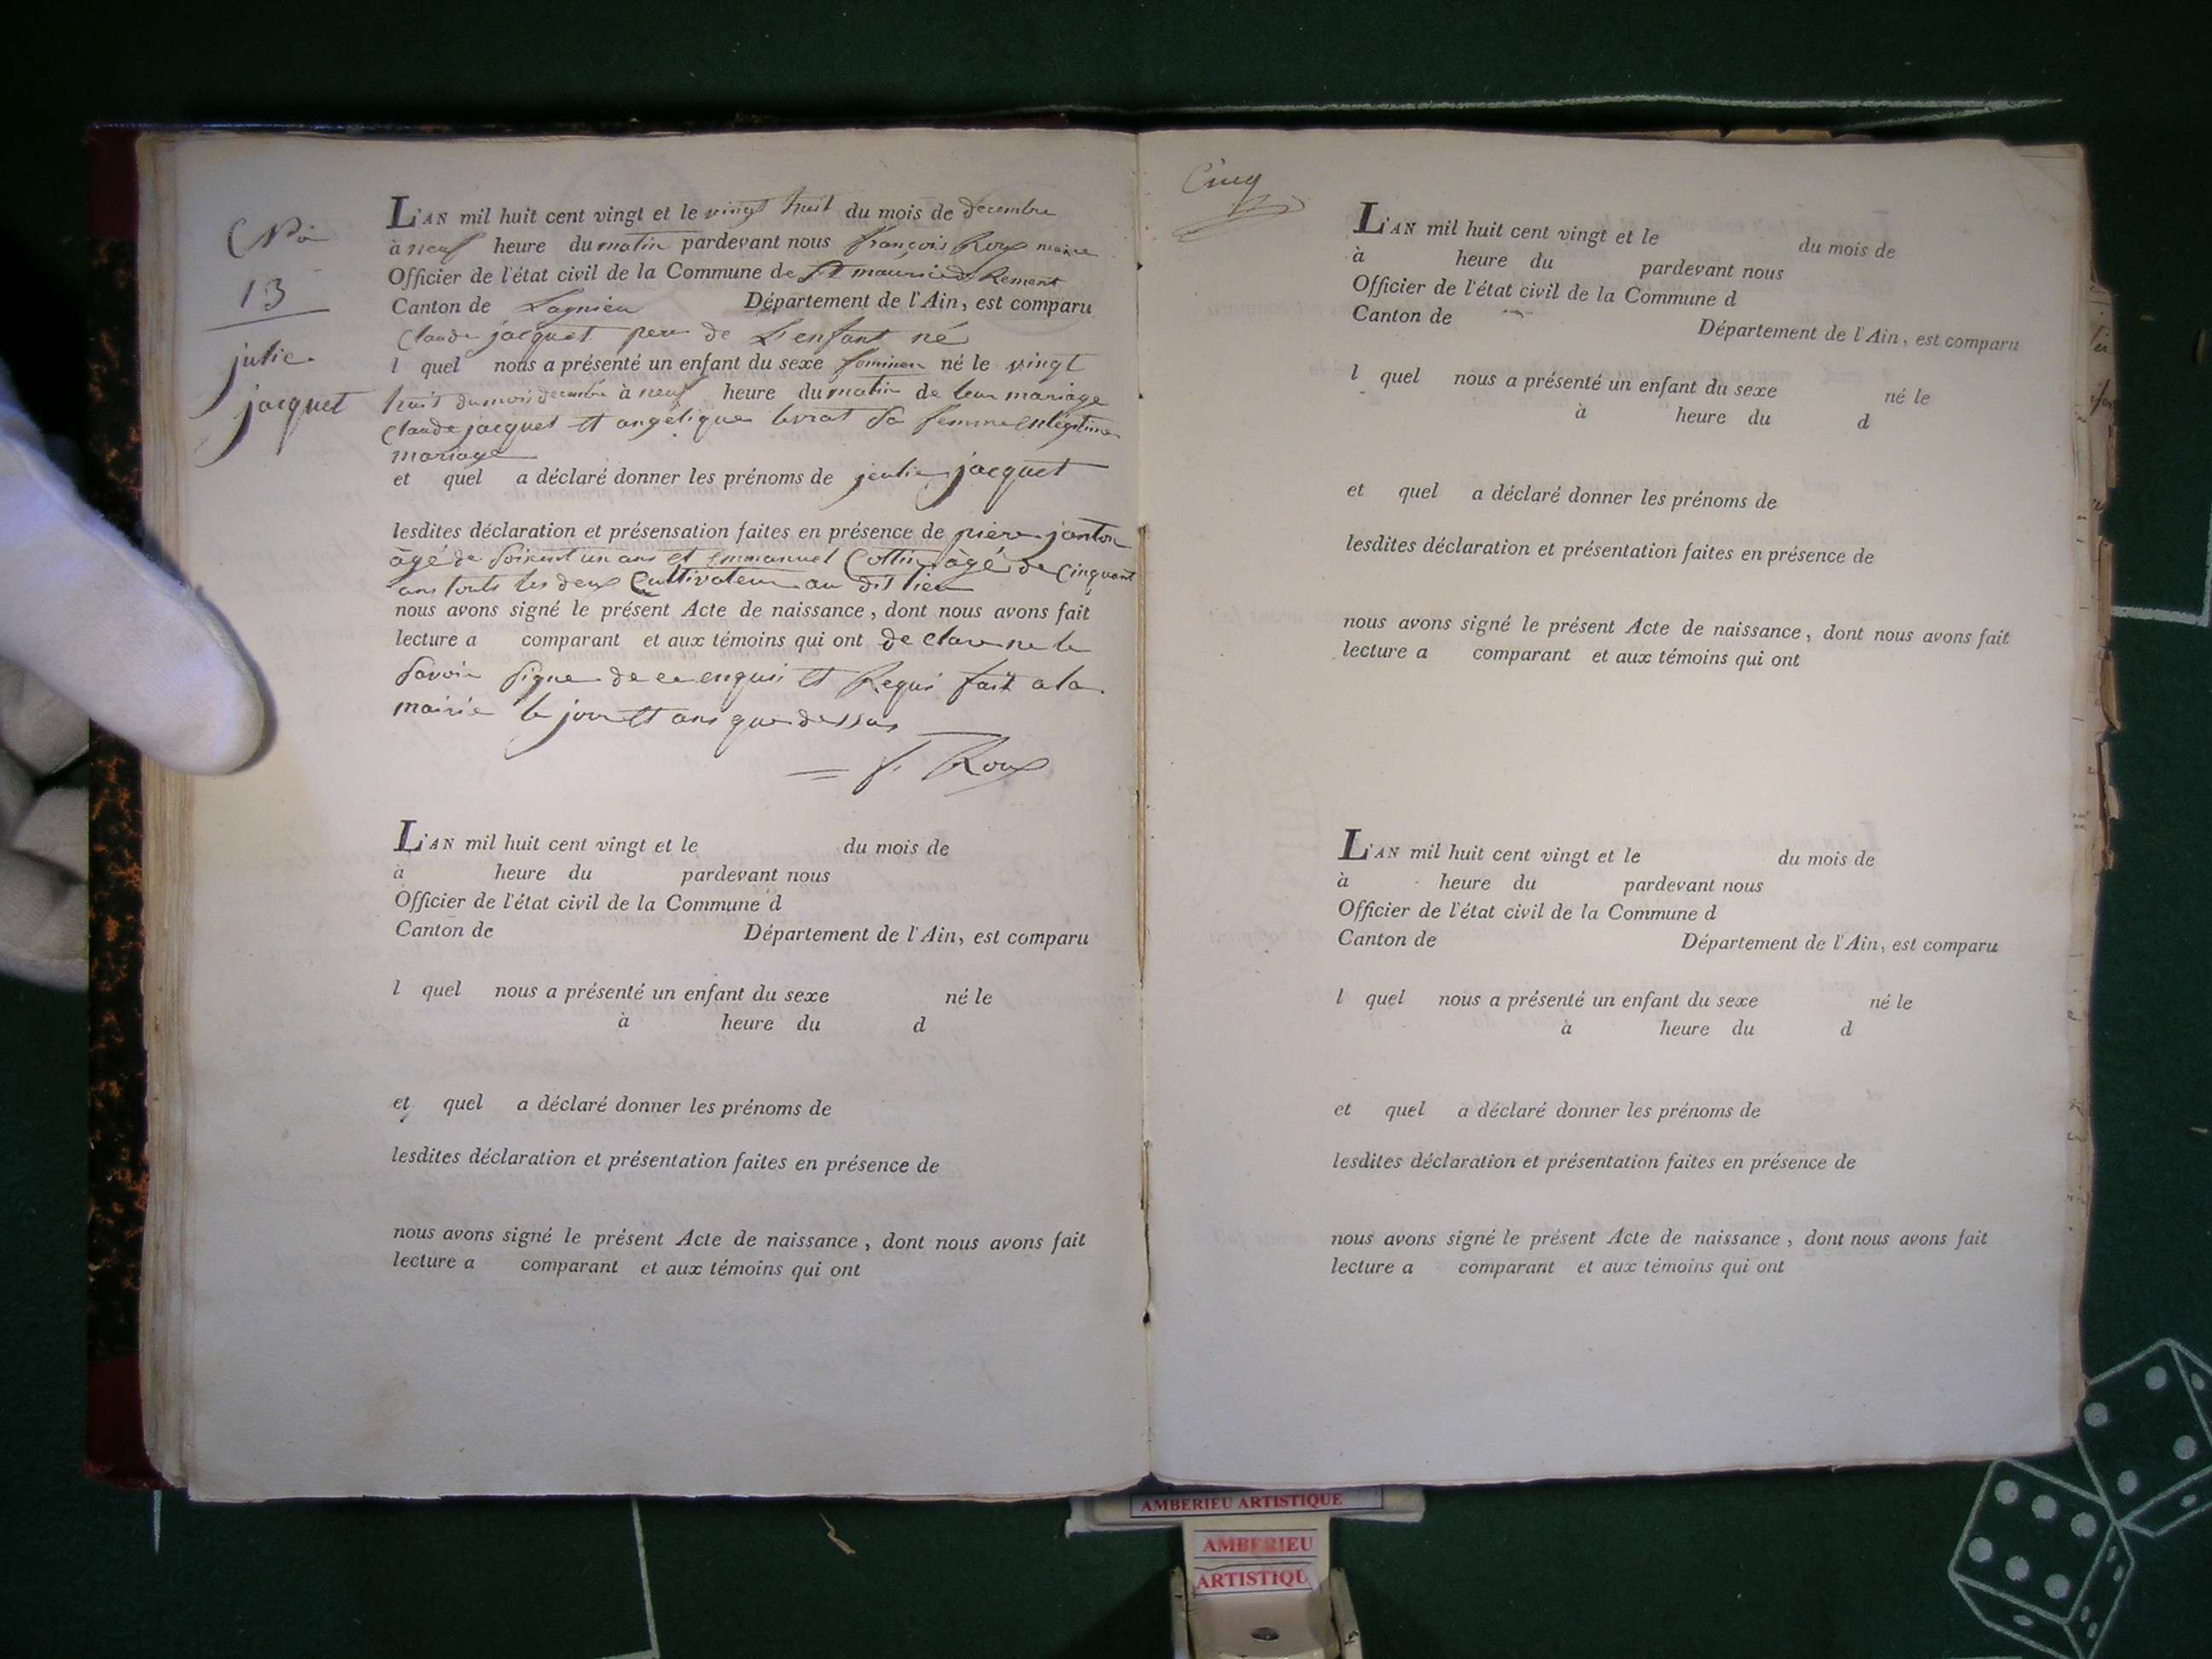 No
13
julie
jacquet
L'AN mil huit cent vingt et le vingt huit du mois de decembre
à neuf heure du matin pardevant nous françois Roux maire
Officier de l'état civil de la Commune de St maurice de Rement
Canton de Lagnieu Département de l'Ain, est comparu
Claude jacquet pere de L'enfant né
l quel nous a présenté un enfant du sexe feminen né le vingt
huit du mois decembre à neuf heure du matin de leur mariage
Claude jacquet et angélique levrat sa femme en légitime
mariage
et quel a déclaré donner les prénoms de jeulie jacquet
lesdites déclaration et présensation faites en présence de piere janton
âgé de soixent un ans et emmanuel Cottin âgé de Cinquant
ans touts les deux Cultivateur au dit lieu
nous avons signé le présent Acte de naissance, dont nous avons fait
lecture a comparant et aux témoins qui ont de clare ne le
savoir signe de ce enquis et Requi fait a la
mairie le jour et ans que dessus
F. Roux
L'AN mil huit cent vingt et le du mois de
à heure du pardevant nous
Officier de l'état civil de la Commune d
Canton de Département de l'Ain, est comparu
l quel nous a présenté un enfant du sexe né le
à heure du d
et quel a déclaré donner les prénoms de
lesdites déclaration et présentation faites en présence de
nous avons signé le présent Acte de naissance, dont nous avons fait
lecture a comparant et aux témoins qui ont
Cinq
L'AN mil huit cent vingt et le du mois de
à heure du pardevant nous
Officier de l'état civil de la Commune d
Canton de Département de l'Ain, est comparu
l quel nous a présenté un enfant du sexe né le
à heure du d
et quel a déclaré donner les prénoms de
lesdites déclaration et présentation faites en présence de
nous avons signé le présent Acte de naissance, dont nous avons fait
lecture a comparant et aux témoins qui ont
L'AN mil huit cent vingt et le du mois de
à heure du pardevant nous
Officier de l'état civil de la Commune d
Canton de Département de l'Ain, est comparu
l quel nous a présenté un enfant du sexe né le
à heure du d
et quel a déclaré donner les prénoms de
lesdites déclaration et présentation faites en présence de
nous avons signé le présent Acte de naissance, dont nous avons fait
lecture a comparant et aux témoins qui ont
AMBERIEU ARTISTIQUE
AMBERIEU
ARTISTIQU